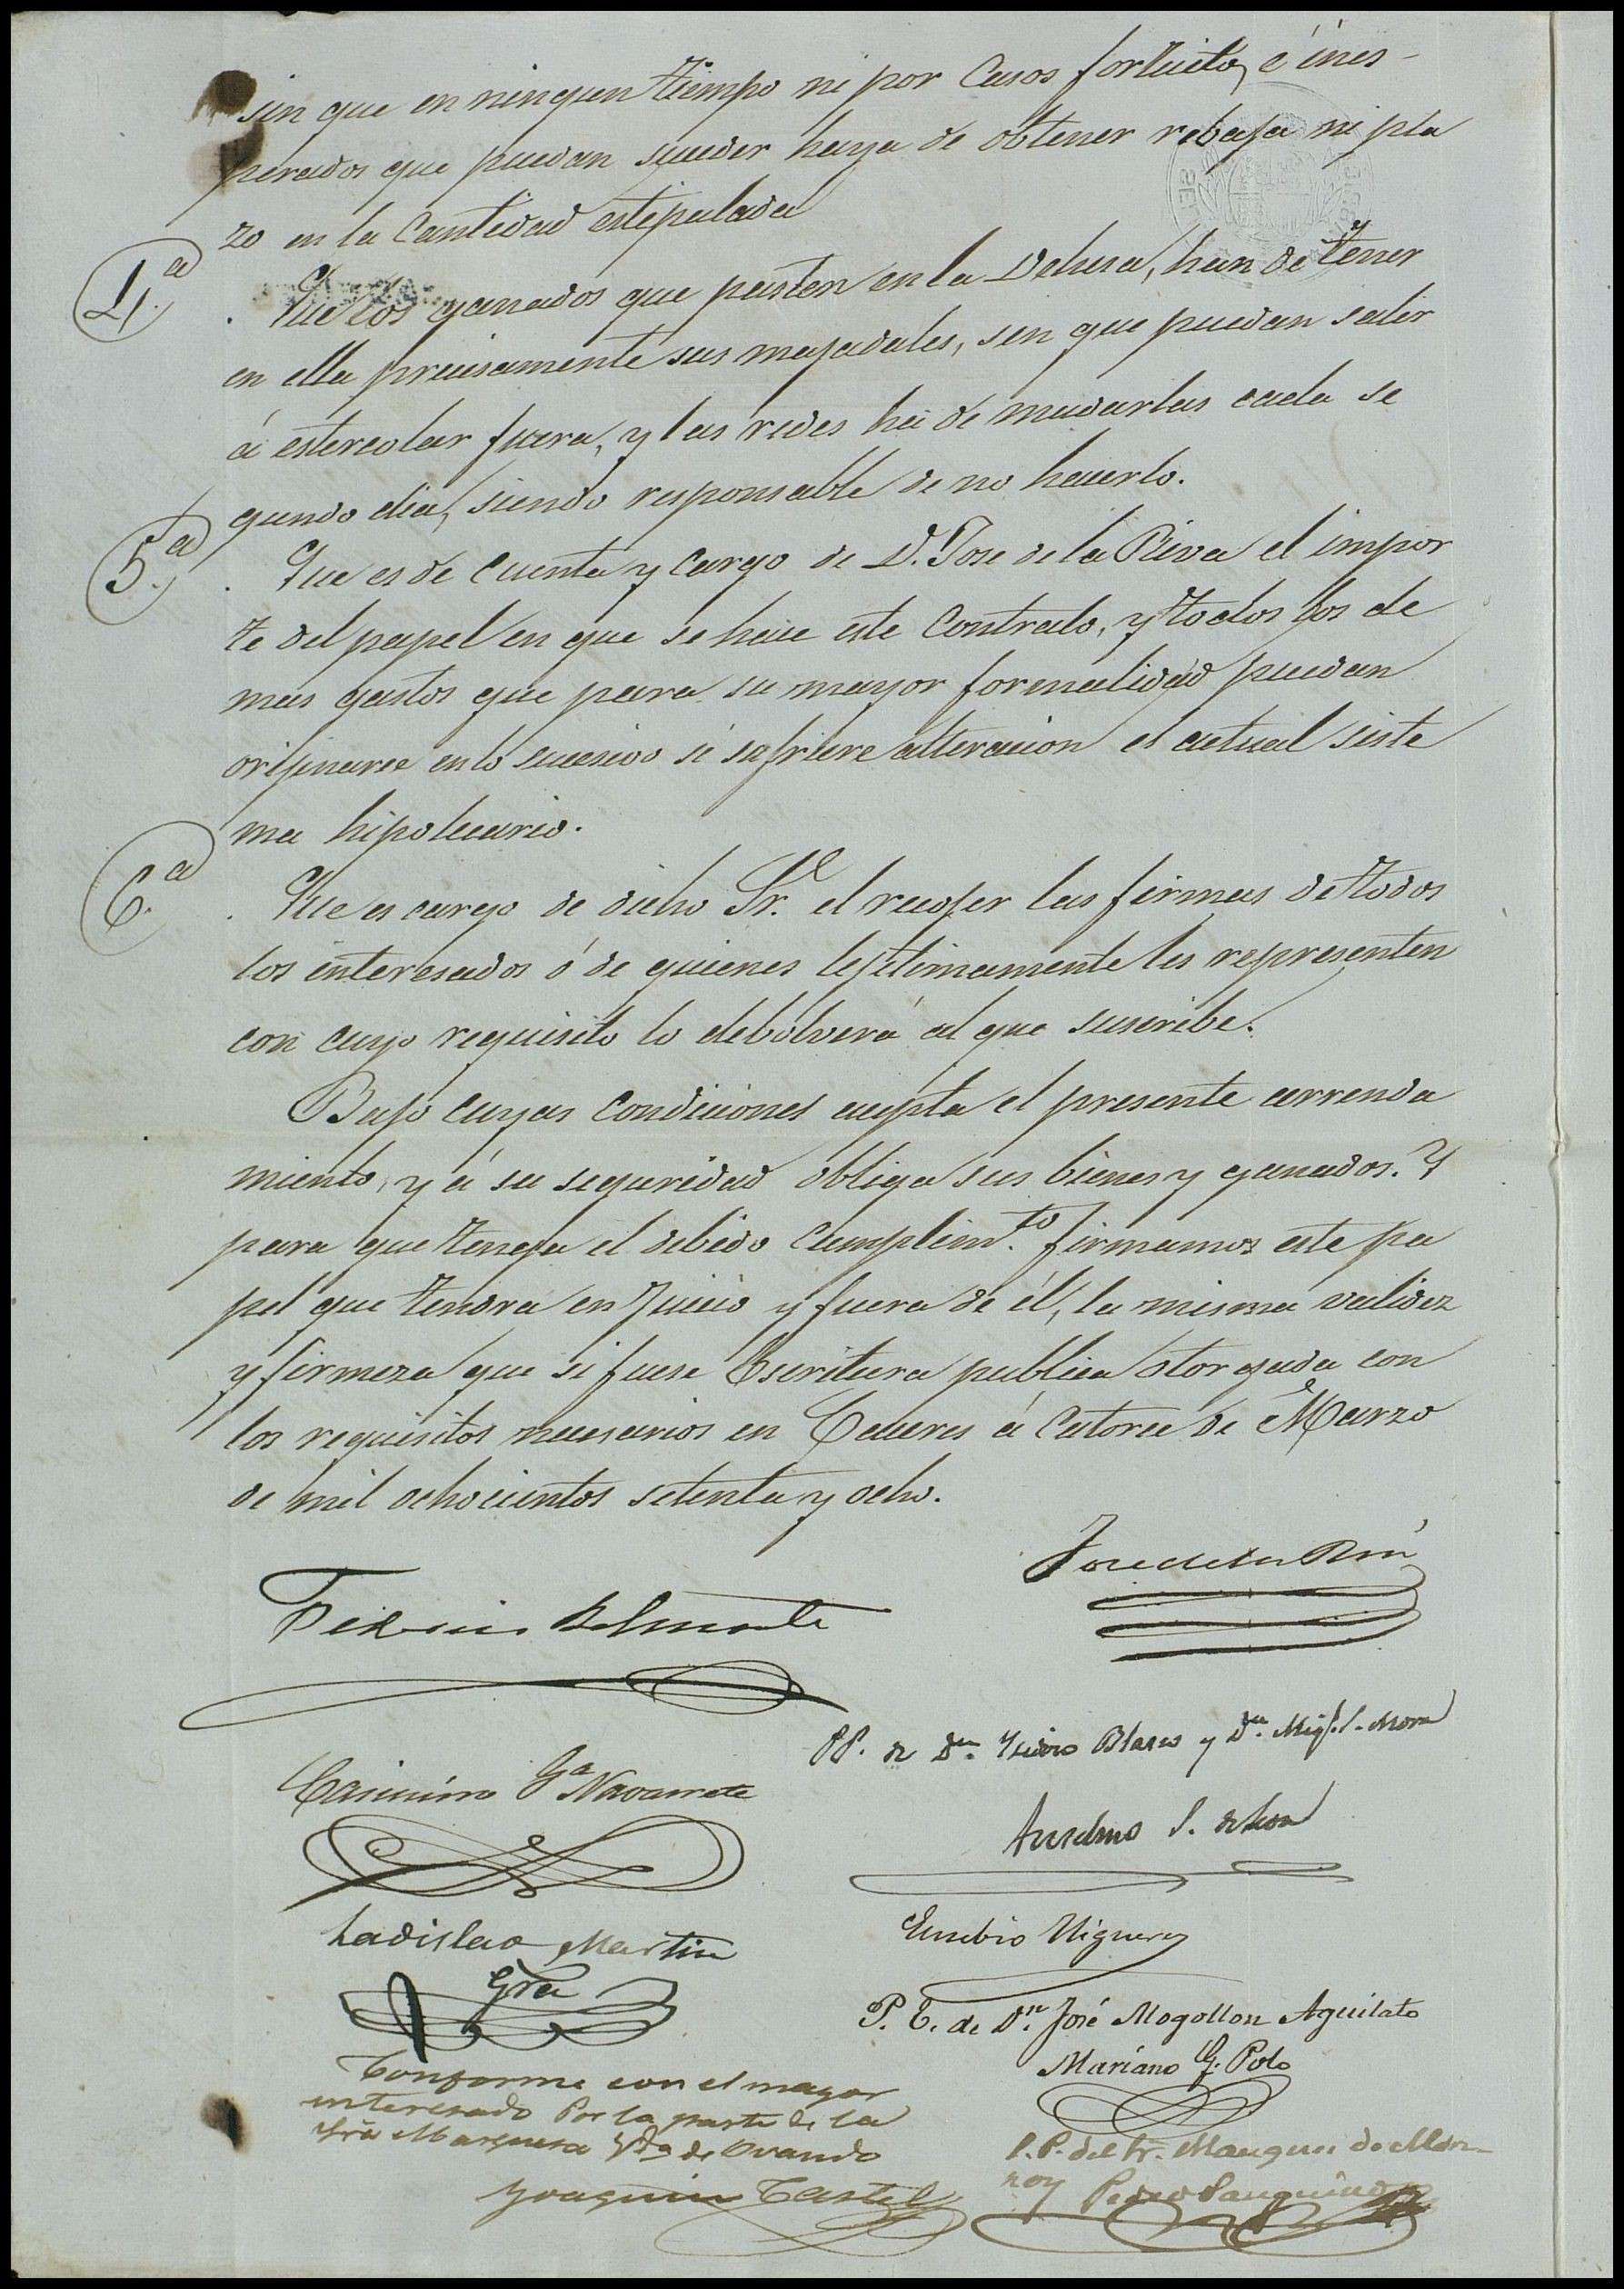 sin que en ningun tiempo ni por Casos fortuitos, é ines-
perados que puedan suceder haya de obtener rebaja ni pla
zo en la Cantidad estipulada
4.ª Que los ganados que pasten en la Dehesa, han de tener
en ella precisamente sus majadales, sin que puedan salir
á estercolar fuera, y las redes ha de mudarlas cada se
gundo dia, siendo responsable de no hacerlo.
5.ª Que es de cuenta y cargo de D. Jose de la Riva el impor
te del papel en que se hace este Contrato, y todos los de
mas gastos que para su mayor formalidad puedan
orijinarse en lo sucesivo si sufriere alteracion el actual siste
ma hipotecario.
6.ª Que es cargo de dicho Sr. el recojer las firmas de todos
los interesados ó de quienes lejitimamente les representen
con cuyo requisito lo debolverá al que suscribe.
Bajo cuyas condiciones acepta el presente arrenda
miento, y á su seguridad obliga sus bienes y ganados. Y
para que tenga el debido cumplim.to firmamos este pa
pel que tendra en Juicio y fuera de él, la misma validez
y firmeza que si fuese Escritura publica otorgada con
los requisitos necesarios en Caceres á Catorce de Marzo
de mil ochocientos setenta y ocho.
Jose de la Riva
Belmonte
PP. de Dn. Ysidro Blasco y Dn. Mig.l Mora
Casimiro Ga Navarrete
Anselmo S. de Leon
Ladislao Martin
Gra
Eusebio
P. E. de Dn. José Mogollon Aguilato
Mariano G. Polo
Conforme con el mayor
interesado Por la parte de la
Sra Marquesa Vda de Ovando
Joaquin Castel
P.P. del Sr. Marques de Mon-
roy Pedro Sanguino